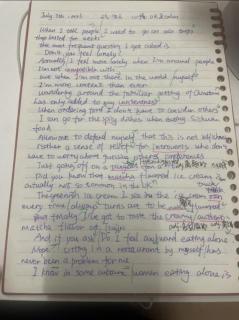 July 7th, 2025
When I tell people I used to go on solo trips
that lasted for weeks
the most frequent question I got asked is
Don't you feel lonely?
Actually I feel more lonely when I'm around people
I'm not compatible with
but when I'm out there in the world myself
I'm more content than ever
wandering around the familiar setting of
has only added to my
When ordering food I don't have to consider others
I can go for the spicy dishes when eating Sichuan
food
Allow me to defend myself that this is not
rather a sense of relief for introverts who don't
have to worry about pleasing others
Just going off on a
Did you know that matcha flavored ice cream is
actually not so common in the UK
The green ice cream I see in the ice cream
every time always turns out to be
But finally I've got to taste the creamy authentic
Matcha flavor of
And if you ask Do I feel awkward eating alone
Nope! Sitting in a restaurant by myself has
never been a problem for me
I know in some cultures women eating alone is